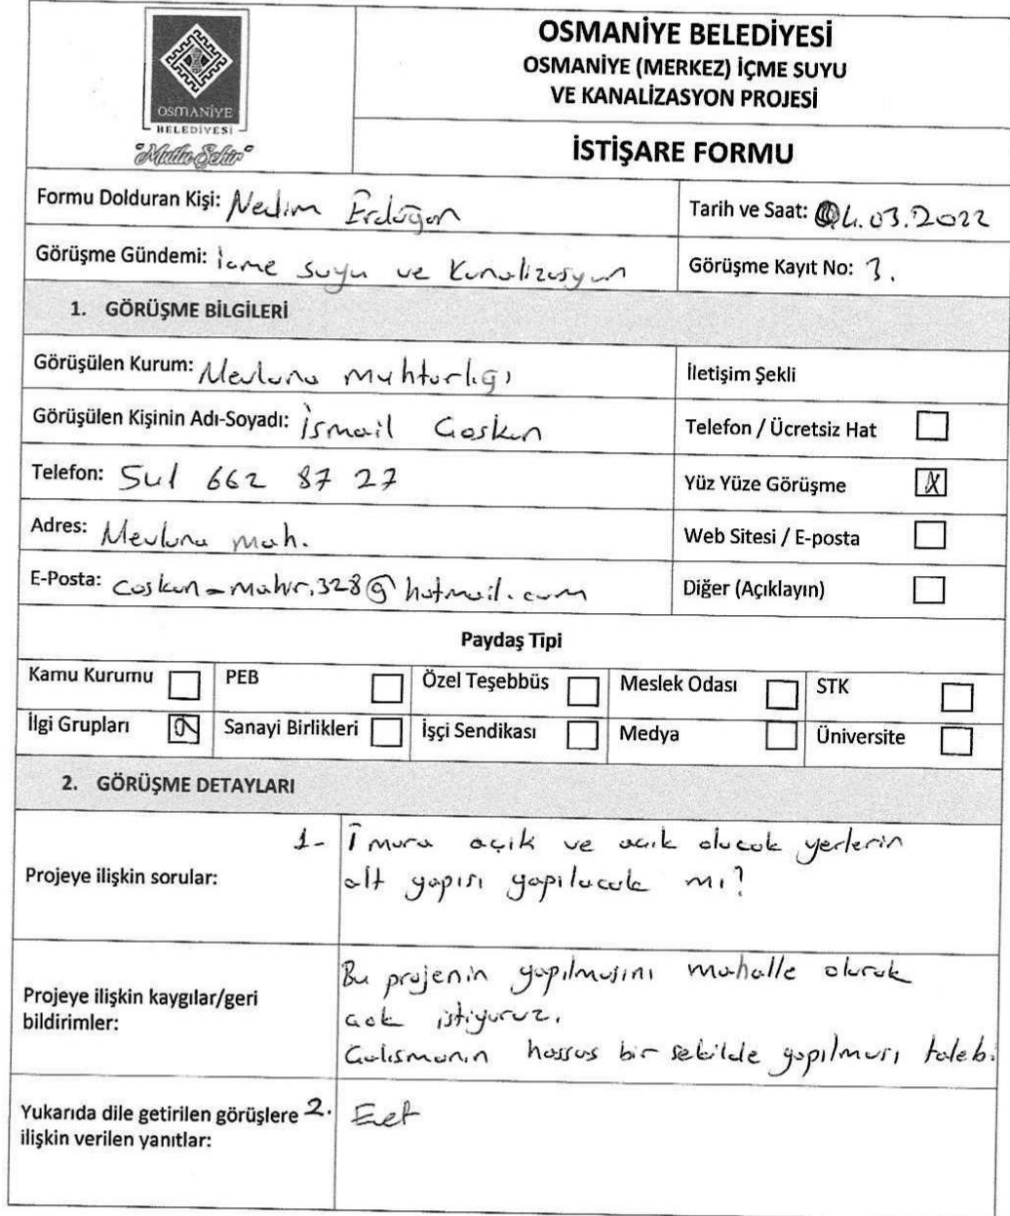 OSMANİYE
BELEDİYESİ
"Mutlu Şehir"
OSMANİYE BELEDİYESİ
OSMANİYE (MERKEZ) İÇME SUYU
VE KANALİZASYON PROJESİ
İSTİŞARE FORMU
Formu Dolduran Kişi: Nedim Erdoğan
Tarih ve Saat: 04.03.2022
Görüşme Gündemi: İçme suyu ve Kanalizasyon
Görüşme Kayıt No: 3.
1. GÖRÜŞME BİLGİLERİ
Görüşülen Kurum: Mevlana Muhtarlığı
İletişim Şekli
Görüşülen Kişinin Adı-Soyadı: İsmail Coşkun
Telefon / Ücretsiz Hat
Telefon: 541 662 87 27
Yüz Yüze Görüşme
Adres: Mevlana mah.
Web Sitesi / E-posta
E-Posta: coskun-mahir.328@hotmail.com
Diğer (Açıklayın)
Paydaş Tipi
Kamu Kurumu PEB Özel Teşebbüs Meslek Odası STK
İlgi Grupları Sanayi Birlikleri İşçi Sendikası Medya Üniversite
2. GÖRÜŞME DETAYLARI
Projeye ilişkin sorular:
1- İmara açık ve açık olacak yerlerin
alt yapısı yapılacak mı?
Projeye ilişkin kaygılar/geri
bildirimler:
Bu projenin yapılmasını mahalle olarak
çok istiyoruz.
Çalışmanın hassas bir şekilde yapılması taleb.
Yukarıda dile getirilen görüşlere 2.
ilişkin verilen yanıtlar:
Evet